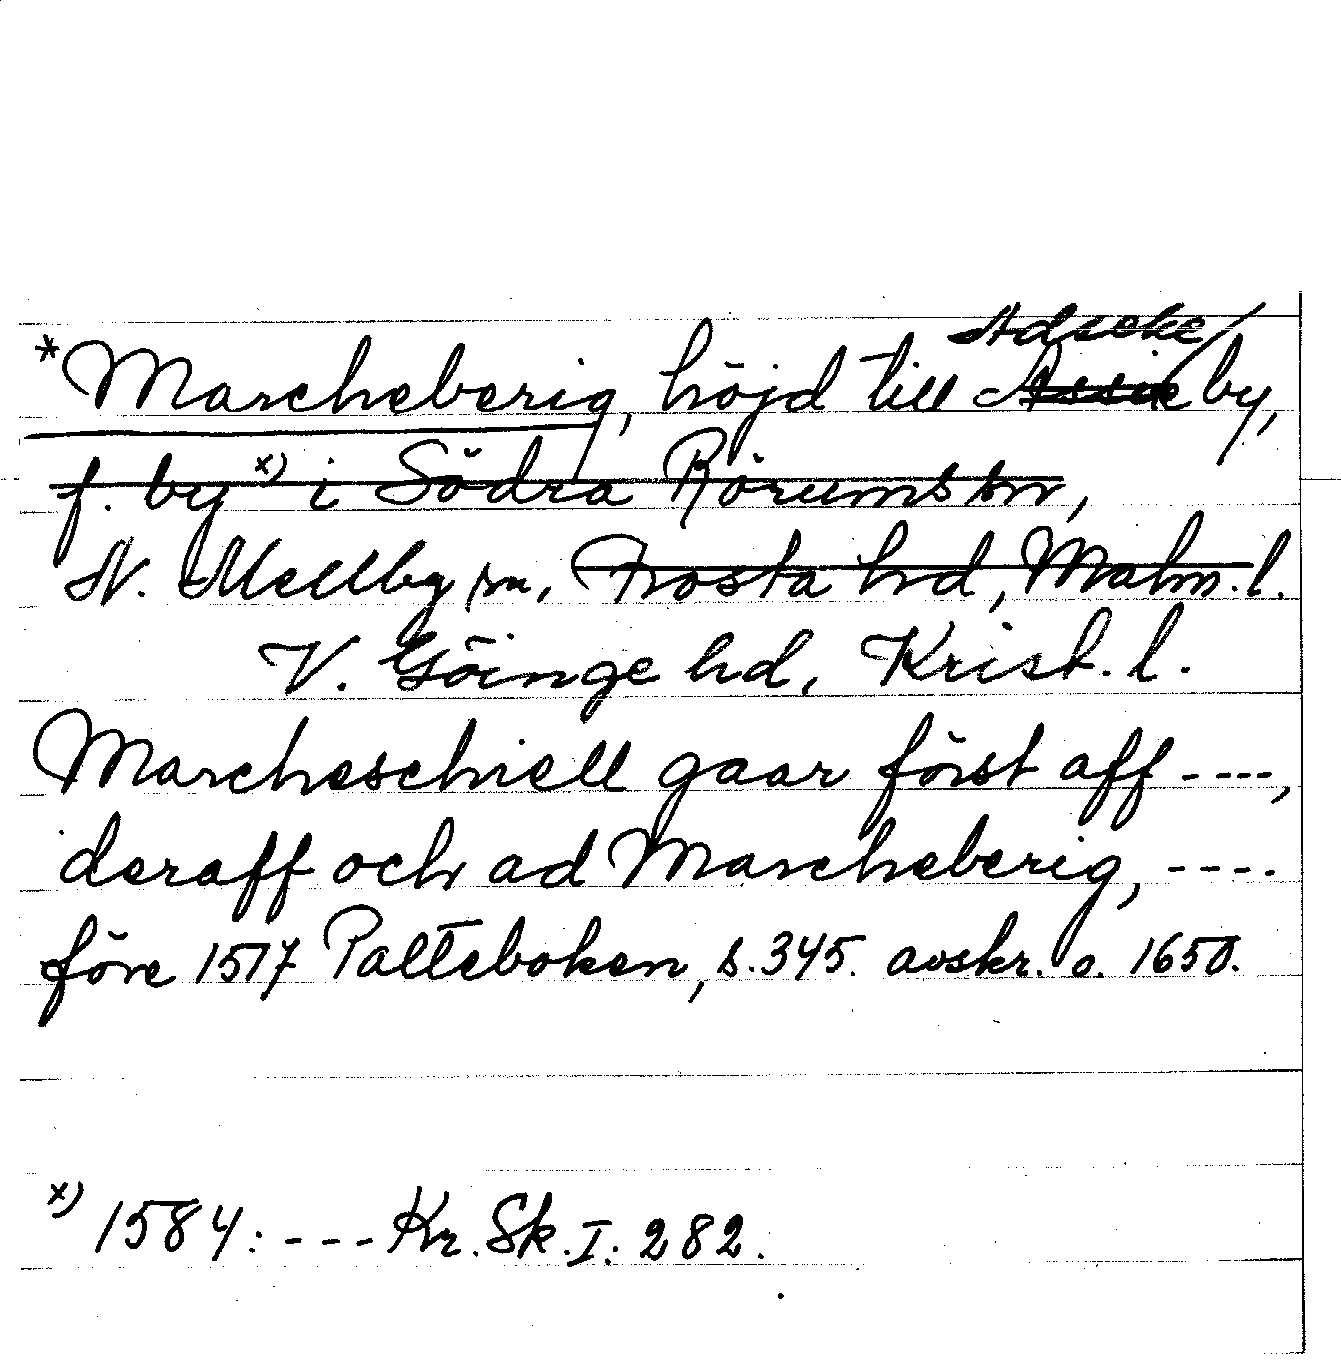 Adseke
*Marcheberig, höjd till Assie by,
f. by x) i Södra Rörums sn,
N. Mellby sn, Frosta hd, Malm. l.
V. Göinge hd, Krist. l.
Marcheschiell gaar först aff ----,
deraff och ad Marcheberig, ----.
före 1517 Palteboken, s. 345. avskr. o. 1650.
x) 1584: --- Kr. Sk. I: 282.